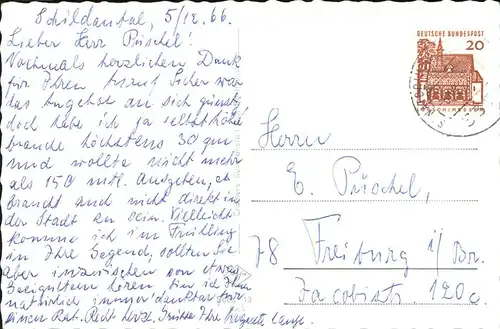 Schildautal, 5/12.66.
Lieber Herr Püschel!
Nochmals herzlichen Dank
für Ihren Anruf. Sicher war
das Angebot an sich günstig
doch habe ich ja selbst
brauche höchstens 30 qm
und wollte nicht mehr
als 150 mtl. ausgeben,
braucht auch nicht direkt in
der Stadt zu sein. Vielleicht
komme ich im Frühling
in Ihre Gegend, sollten Sie
aber inzwischen von etwas
Geeignetem hören, bin ich Ihnen
natürlich immer dankbar für
einen Rat. Recht herzl. Grüsse Ihre
DEUTSCHE BUNDESPOST
20
Herrn
E. Püschel,
78 Freiburg i/Br.
Jacobistr 120a.